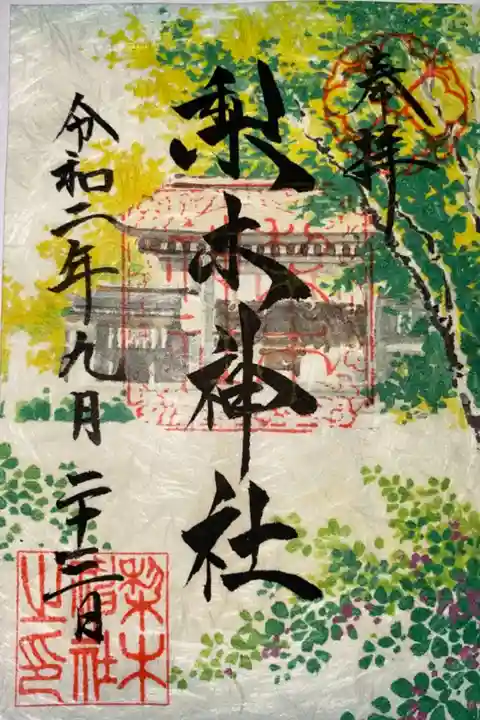 奉拝
梨木神社
令和二年九月二十三日
梨木
神社
之印